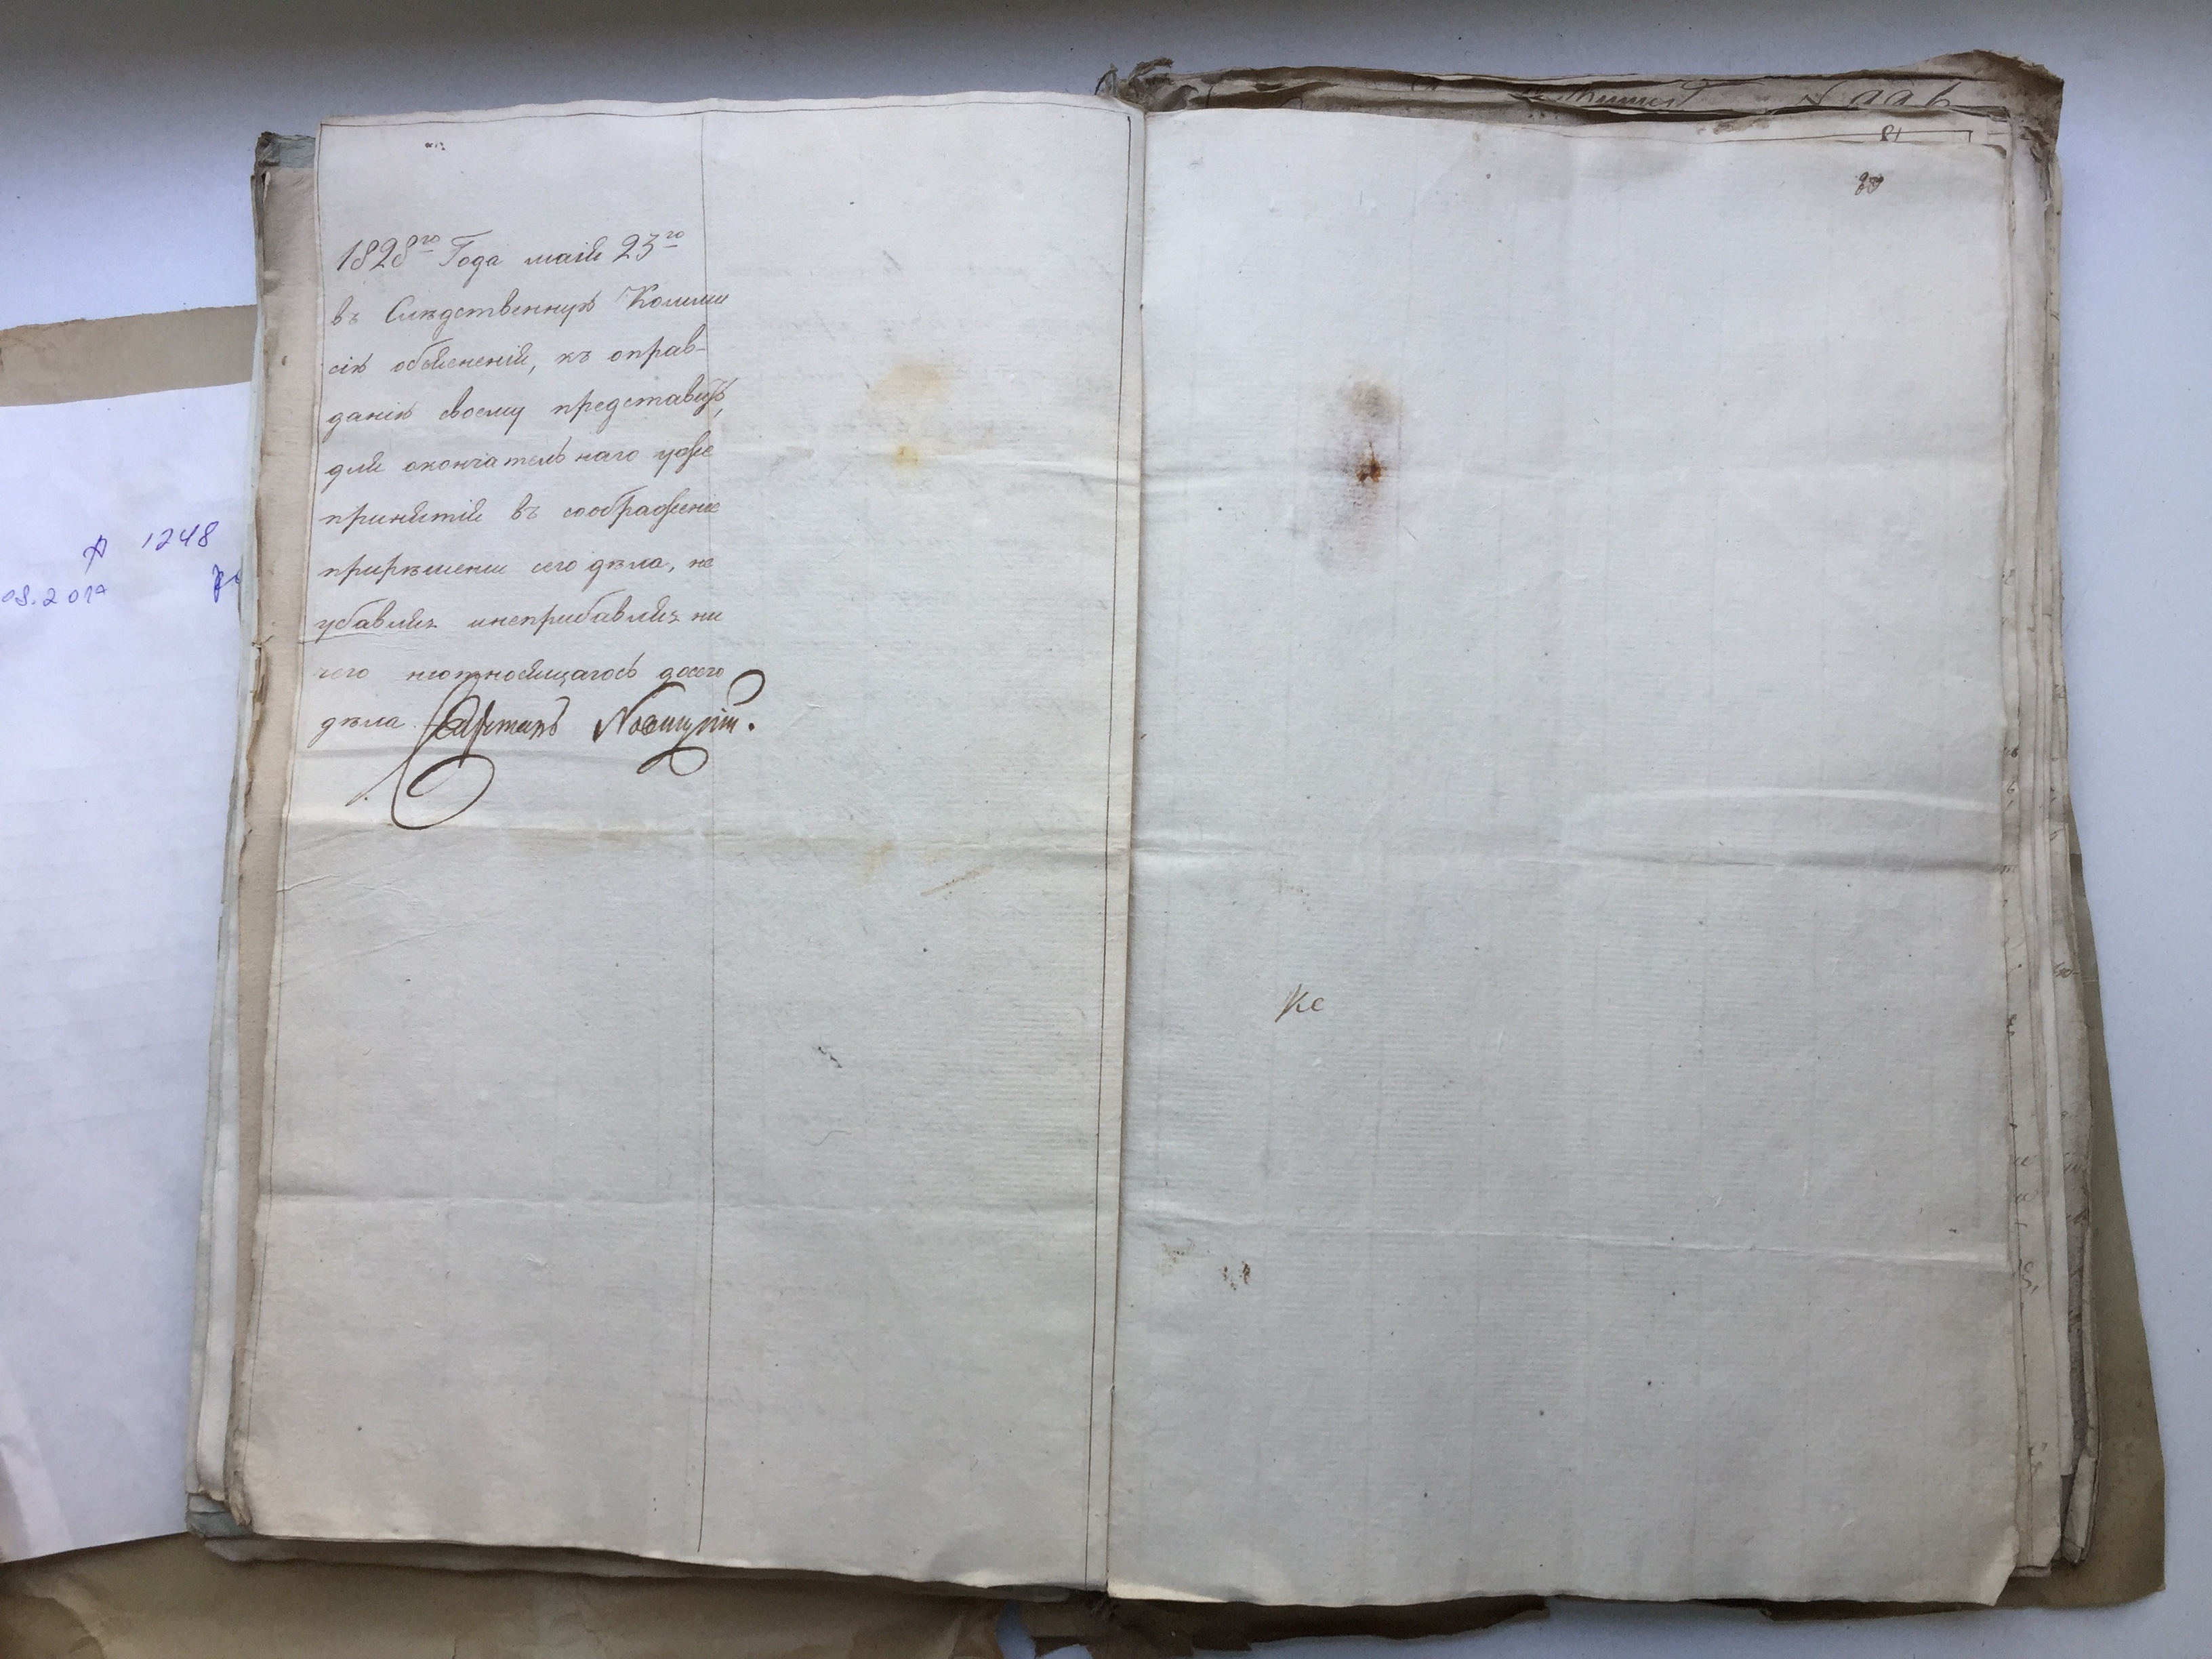 1828го Года маія 23го
въ Слѣдственную Комми
сію объясненія, къ оправ-
данію своему представить,
для окончательнаго уже
принятія въ соображеніе
прирѣшеніи сего дѣла, не
убавляя инеприбавляя ни
чего неотносящагося досего
дѣла
80
81
Ке
1248